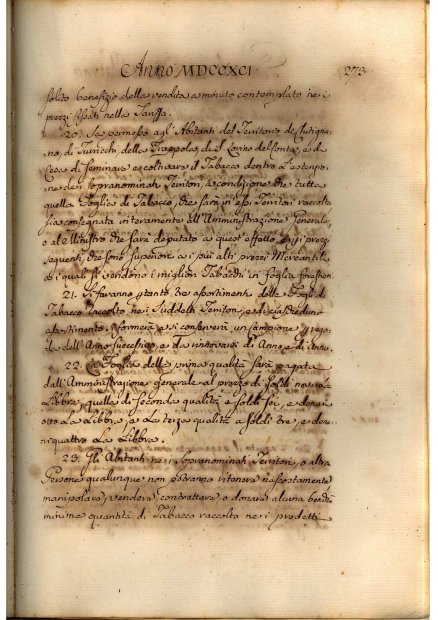 Anno MDCCXCI 273
solito benefizio della vendita a minuto contemplato nei
prezzi fissati nella Tariffa.
20. Sia permesso agli Abitanti del Territorio di Sestigna-
no, di Turicchi, della Trappola, di Loro, del Conte, e di
Ceca di seminare e coltivare il Tabacco dentro l'estensio-
ne dei sopranominati Territori, a condizione che tutta
quella Foglia di Tabacco, che sarà in essi Territori raccolta
sia consegnata interamente all'Amministrazione Generale,
o al Ministro che sarà deputato a quest'effetto, ai prezzi
seguenti, che sono superiori ai più alti prezzi Mercantili,
ai quali si vendono i migliori Tabacchi in foglia forestieri.
21. Si faranno tanto tre assortimenti delle Foglie di
Tabacco raccolto nei suddetti Territori, e di ciascheduno
assortimento si formerà, e si conserverà un Campione per
dell'Anno successivo, e da rinnovarsi di Anno in Anno.
22. La Foglia della prima qualità sarà pagata
dall'Amministrazione generale al prezzo di soldi nove la
Libbra, quella di seconda qualità a soldi sei, e denari
otto La Libbra, e La terza qualità a soldi tre, e dena-
ri quattro La Libbra.
23. Gli Abitanti nei Sopranominati Territori, o altra
Persona qualunque non potranno ritenere nascostamente
manipolare, vendere, contrattare, o donare alcuna benchè
minima quantità di Tabacco raccolto nei predetti